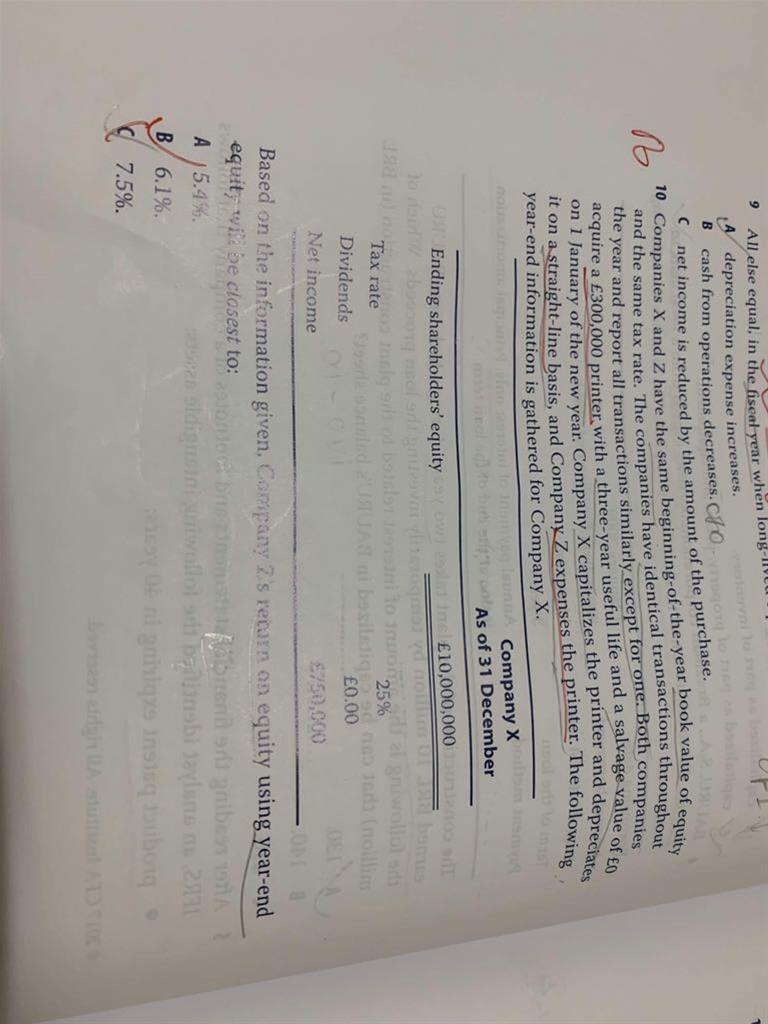 9 All else equal, in the fiscal year when long-lived
A depreciation expense increases.
B cash from operations decreases. CFO
C net income is reduced by the amount of the purchase.
10 Companies X and Z have the same beginning-of-the-year book value of equity
and the same tax rate. The companies have identical transactions throughout
the year and report all transactions similarly except for one. Both companies
acquire a £300,000 printer with a three-year useful life and a salvage value of £0
on 1 January of the new year. Company X capitalizes the printer and depreciates
it on a straight-line basis, and Company Z expenses the printer. The following
year-end information is gathered for Company X.
Company X
As of 31 December
Ending shareholders' equity £10,000,000
Tax rate 25%
Dividends £0.00
Net income £750,000
Based on the information given, Company Z's return on equity using year-end
equity will be closest to:
A 5.4%.
B 6.1%.
C 7.5%.